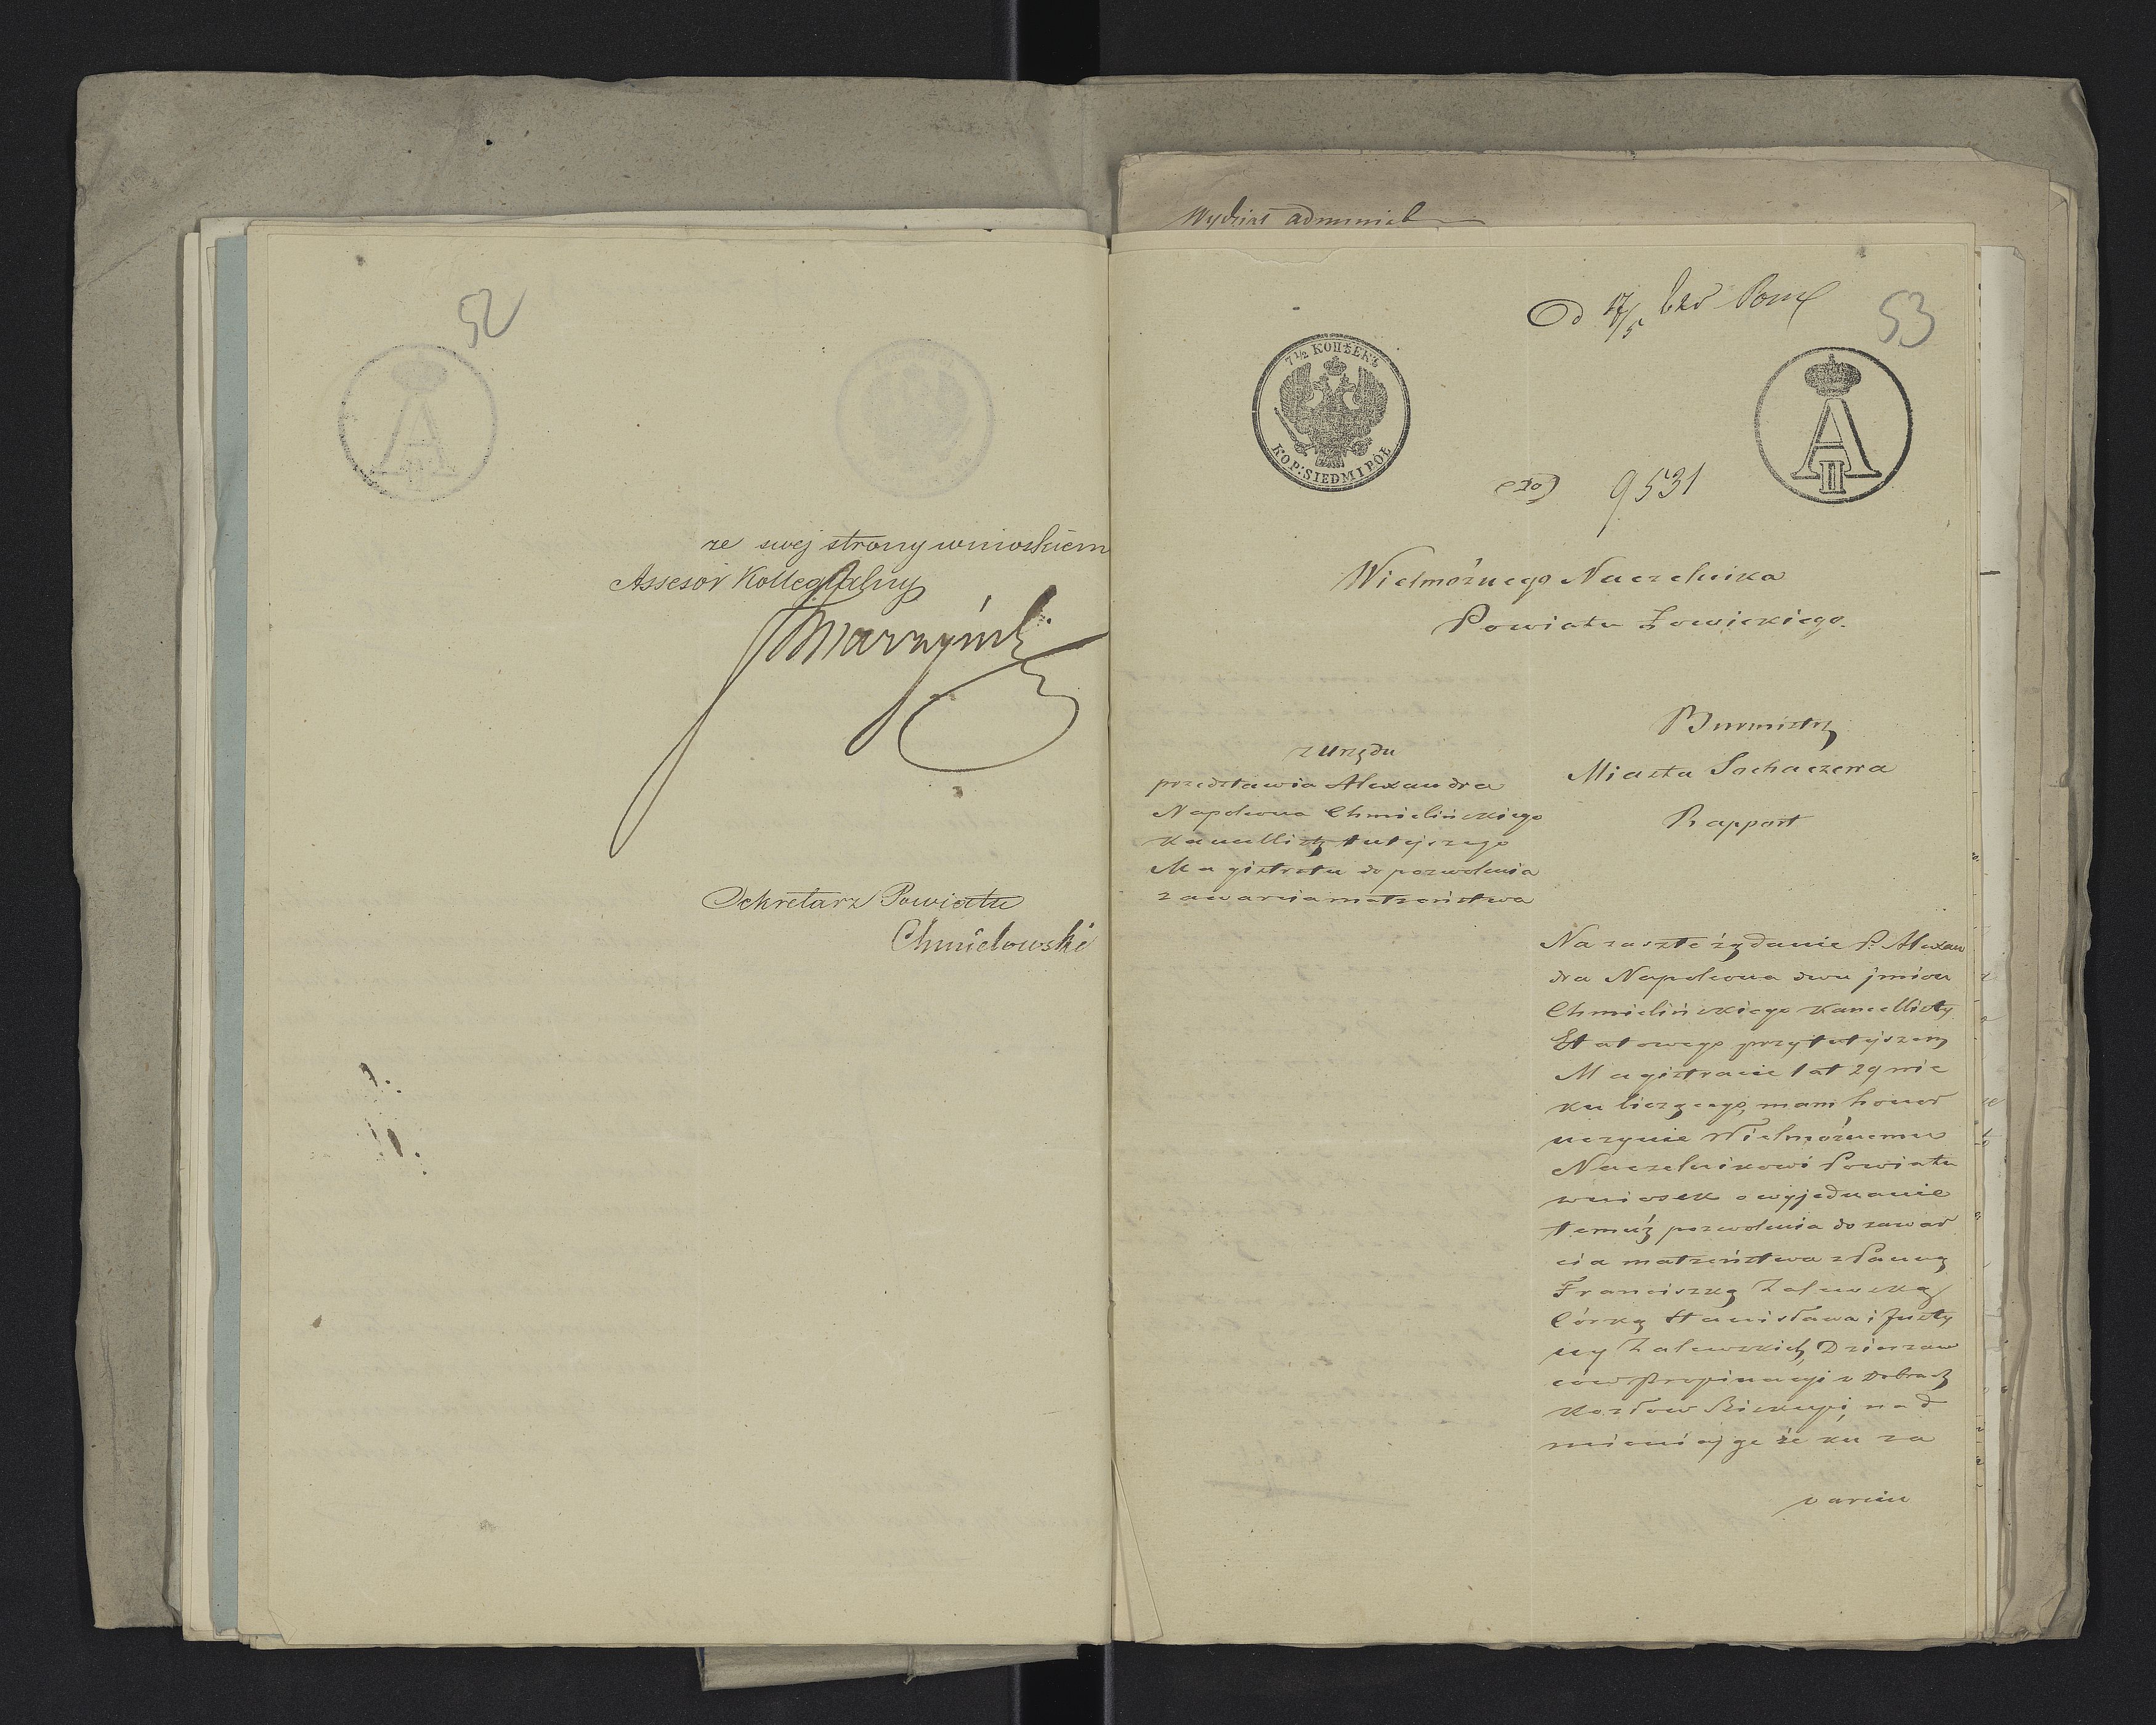 52
ze swej strony wnioskiem
Assesor Kollegialny
Sekretarz Powiatu
Chmielowski
Wydział administ
Od 17/5
53
7½ КОПѢЕКЪ
KOP: SIEDMIPÓŁ
A II
9531
Wielmożnego Naczelnika
Powiatu Łowickiego.
Burmistrz
Miasta Sochaczewa
Rapport
z Urzędu
przedstawia Alexandra
Napoleona Chmielińskiego
Kancellistę tutejszego
Magistratu do pozwolenia
zawarcia małżeństwa
Na zaszłe żądanie P. Alexan
dra Napoleona dwu jmion
Chmielińskiego Kancellisty
Etatowego przy tutejszem
Magistracie lat 29 wie
ku liczącego, mam honor
uczynić Wielmożnemu
Naczelnikowi Powiatu
wniosek o wyjednanie
temuż pozwolenia do zawar
cia małżeństwa z Panną
Franciszką Zalewską
Córką Stanisława i Justy
ny Zalewskich, Dzierżaw
ców Propinacyi w Dobrach
Kozłow Biskupi, nad
mieniając że ku za
warciu